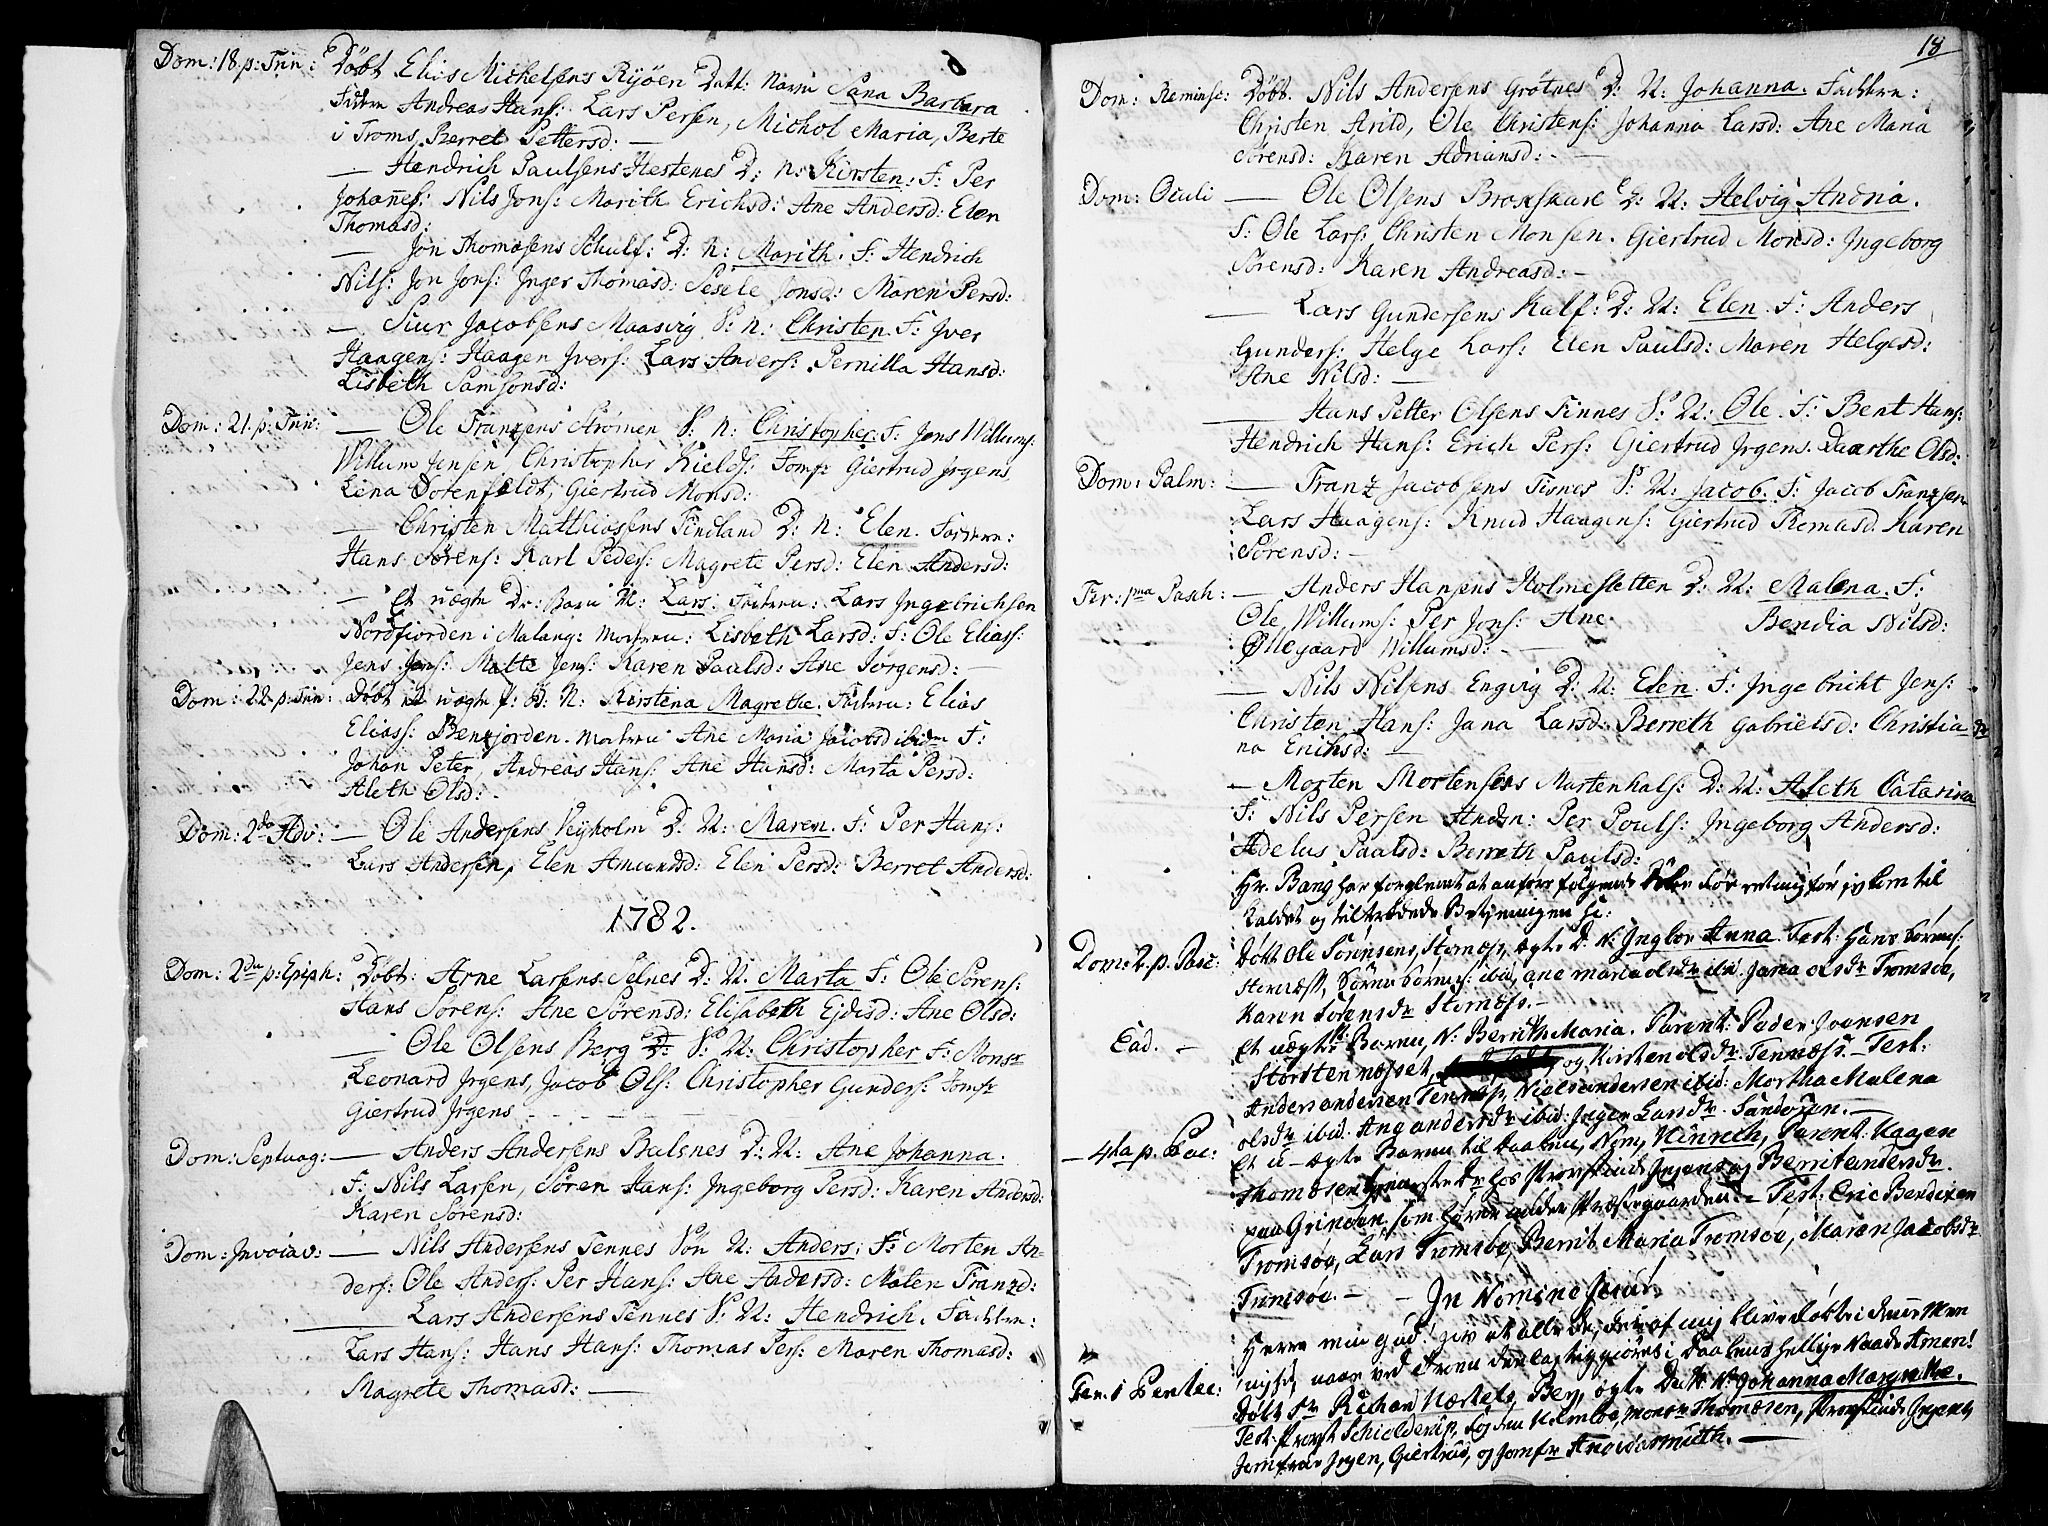 Dom: 18. p: Trin: Døbt Elias Michelsens Ryøen Datt: Navn Sana Barbara
Faddere Andreas Hans: Lars Persen, Michol Maria, Berte
i Troms, Berret Pettersd: —
— Hendrich Paulsens Hestenes D: N: Kirsten: F: Per
Johannes: Nils Jons: Marith Erichsd: Ane Andersd: Elen
Thomasd:
— Jon Thomasens Schulf: D: N: Marith: F: Hendrich
Nils: Jon Jons: Inger Thomasd: Sesele Jonsd: Maren Persd:
— Siur Jacobsens Maasvig S: N: Christen. F: Iver
Haagens: Haagen Ivers: Lars Anders: Pernilla Hansd:
Lisbeth Samsonsd:
Dom: 21. p: Trin: — Ole Franzens Strømen S: N: Christopher: F: Jens Willums:
Willum Jensen, Christopher Kields: Jomfr Giertrud Jrgens,
Lena Dotenfeldt, Giertrud Monsd:
— Christen Matthiasens Findland D: N: Elen. Faddere:
Hans Sørens: Karl Peders: Magrete Persd: Elen Andersd:
— Et uægte Dr: Barn N: Lars: Faderen: Lars Ingebrichsen
Nordfiorden i Malang: Moderen: Lisbeth Larsd: F: Ole Elias:
Jens Jons: Matte Jens: Karen Paulsd: Ane Jørgensd: —
Dom: 22. p: Trin: Døbt et uægte P: B: N: Kirstena Magrethe. Faderen: Elias
Elias: Bensjorden. Moderen Ane Maria Jacobsd ibidem F:
Johan Peter, Andreas Hans: Ane Hansd: Marta Persd:
Aleth Olsd: —
Dom: 2da Adv: — Ole Andersens Vejholm D: N: Maren. F: Per Hans:
Lars Andersen, Elen Amundsd: Elen Persd: Berret Andersd:
1782.
Dom: 2da p: Epiph: Døbt: Arne Larsens Selnes D: N: Marta F: Ole Sørens:
Hans Sørens: Ane Sørensd: Elisabeth Ejdisd: Ane Olsd:
— Ole Olsens Berg S: N: Christopher F: Monsr
Leonard Jrgens, Jacob Ols: Christopher Gunders: Jomfr
Giertrud Jrgens — —
Dom: Septuag: — Anders Andersens Balsnes D: N: Ane Johanna.
F: Nils Larsen, Søren Hans: Ingeborg Persd: Karen Andersd:
Karen Sørensd:
Dom: Invocav: — Nils Andersens Tennes Søn N: Anders: F: Morten An-
ders: Ole Anders: Per Hans: Ane Andersd: Maten Franzd:
— Lars Andersens Tennes S: N: Hendrich. Faddere:
Lars Hans: Hans Hans: Thomas Pers: Maren Thomasd:
Magrete Thomasd: —
18
Dom: Reminsc: Døbt. Nils Andersens Grøtnes D: N: Johanna. Faddere:
Christen Arild, Ole Christens: Johanna Larsd: Ane Maria
Sørensd: Karen Adriansd: —
Dom: Oculi — Ole Olsens Broxskare D: N: Helvig Andria.
F: Ole Lars: Christen Monsen. Giertrud Monsd: Ingeborg
Sørensd: Karen Andreasd: —
— Lars Gundersens Kalf: D: N: Elen. F: Anders
Gunders: Helge Lars: Elen Paulsd: Maren Helgesd:
Ane Nilsd: —
— Hans Petter Olsens Finnes S: N: Ole. F: Bent Hans:
Hendrich Hans: Erich Pers: Giertrud Jrgens. Daarthe Olsd:
Dom: Palm: — Franz Jacobsens Tisnes S: N: Jacob. F: Jacob Franzsen
Lars Haagens: Knud Haagens: Giertrud Themasd: Karen
Sørensd: —
Fer: 1ma Pasch: — Anders Hansens Holmesletten D: N: Malena. F:
Ole Willums: Per Jons: Ane Bendia Nilsd:
Øllegaard Willumsd: —
— Nils Nilsens Engvig D: N: Elen. F: Ingebricht Jens:
Christen Hans: Jana Larsd: Berreth Gabrielsd: Christia-
na Erichsd: —
— Mozten Mortensens Martenhals: D: N: Aleth Catarina
F: Nils Persen Andsn: Per Pouls: Ingeborg Andersd:
Adelus Paulsd: Berreth Paulsd:
Hr. Bang har forglemt at anføre følgende før jeg kom til
Kaldet og tiltrædede Betjeningen sc:
Dom: 2. p. Pasc: Døbt Ole Sørensens, Stornæs, ægte D: N: Ingbor Anna. Test: Hans Sørens:
Stornæss, Sørn Sørns: ibid, Ane Maria Olsdr ibid. Jana Olsdr Tromsøe,
Karen Sørensdr Stornæss. —
Ead. — Et uægte Barn, N: Berrith Maria. Parent: Peder Joensen
Storstennæsset, og Kirsten Olsdr. Tennæss. — Test:
Anders Andersen Tennæs, Niels Andersen ibid: Mortha Malena
Olsdr ibid. Ane Andersdr ibid: Inger Larsdr. Sandøien. —
— 4ta p. Pac: Et u-ægte Barn til Daaben, Nom, Hinrich, Parent: Haagen
Thomæsen, Dr hos Provstinde Jrgens og Berrit Andersdr.
paa Grinden, som hører under Præstegaarden. — Test: Eric Bendixen
Tromsøe, Lars Tromsøe, Berrit Maria Tromsøe, Maren Jacobsdr
Tromsøe. — — In Nomine Jesu!
Herre min Gud! giv at alle de, der af mig blive døbte i denne Me-
nighed, maae ved Troen deelagtiggiøres i Daabens hellige Naade Amen!
Fer: 1 Pentec: Døbt Sr Richart Hærtels, Bey, ægte Dattr N: Johanna Margrethe.
Test: Provst Schielderup, Monsr Thomæsen, Provstinde Jrgens,
Jomfrue Jrgen, Giertrud, og Jomfr